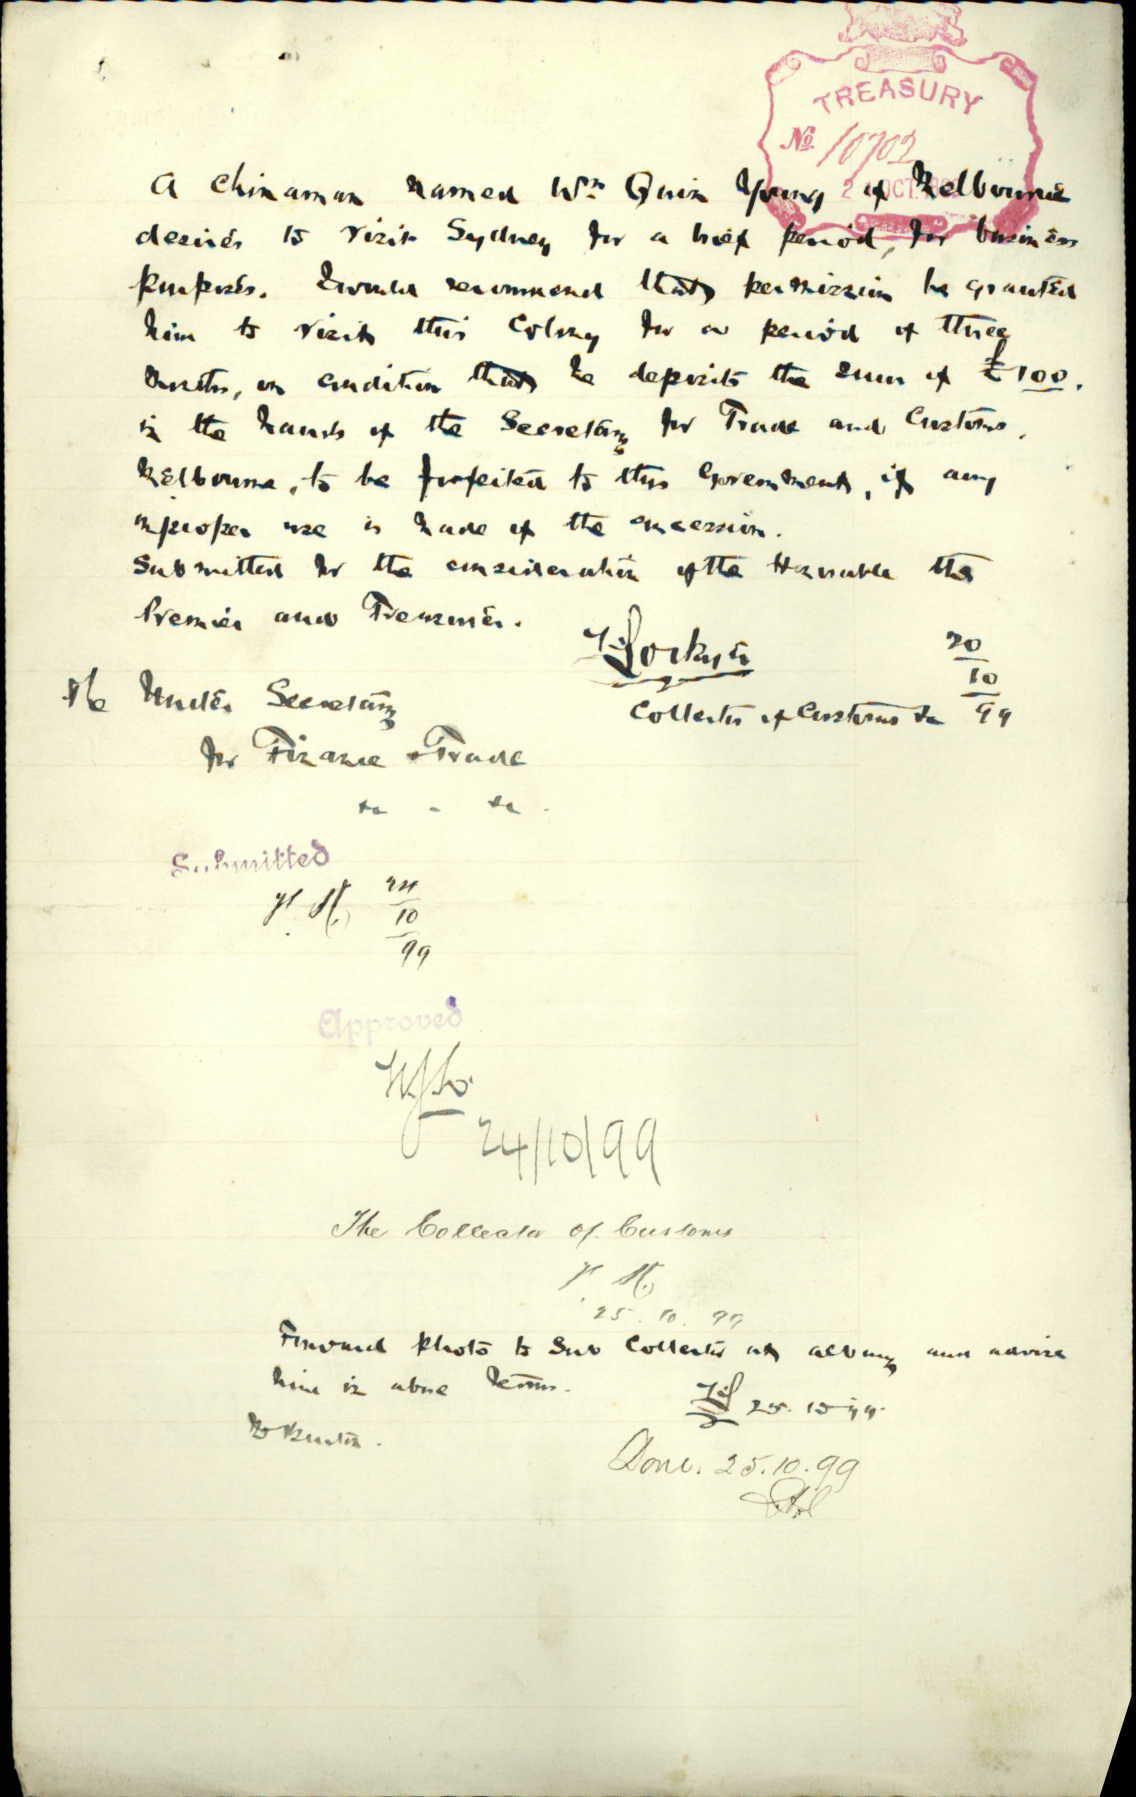 TREASURY
No 10702
2 OCT.
A Chinaman named Wm Quin Young of Melbourne
desires to visit Sydney for a brief period, for business
purposes. I would recommend that permission be granted
him to visit this Colony for a period of three
months, on condition that he deposits the sum of £100.
in the hands of the Secretary for Trade and Customs,
Melbourne, to be forfeited to this Government, if any
improper use is made of the concession.
Submitted for the consideration of the Honorable the
Premier and Treasurer.
N. Lockyer
20/10/99
Collector of Customs &c
The Under Secretary
for Finance & Trade
&c - &c.
Submitted
24/10/99
Approved
24/10/99
The Collector of Customs
25.10.99
Forward photo to Sub Collector at Albury and advise
him in above terms.
NL 25.10.99
Done. 25.10.99